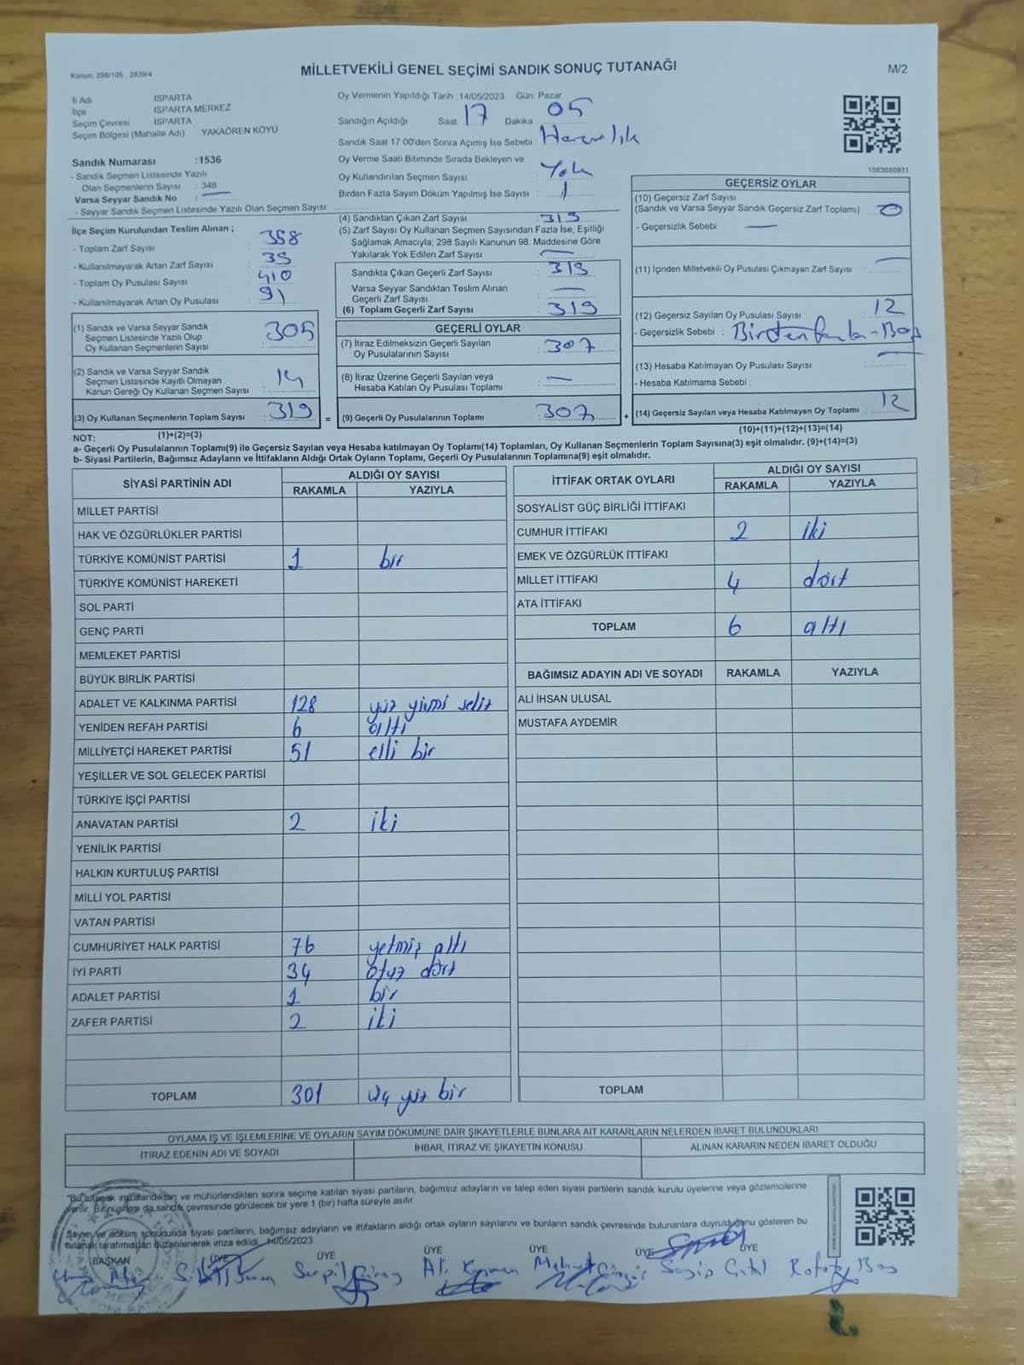 Kanun: 298/105 , 2839/4
MİLLETVEKİLİ GENEL SEÇİMİ SANDIK SONUÇ TUTANAĞI
M/2
İl Adı ISPARTA
İlçe ISPARTA MERKEZ
Seçim Çevresi ISPARTA
Seçim Bölgesi (Mahalle Adı) YAKAÖREN KÖYÜ
Sandık Numarası :1536
- Sandık Seçmen Listesinde Yazılı
Olan Seçmenlerin Sayısı : 348
Varsa Seyyar Sandık No :
- Seyyar Sandık Seçmen Listesinde Yazılı Olan Seçmen Sayısı
İlçe Seçim Kurulundan Teslim Alınan ;
- Toplam Zarf Sayısı 358
- Kullanılmayarak Artan Zarf Sayısı 39
- Toplam Oy Pusulası Sayısı 410
- Kullanılmayarak Artan Oy Pusulası 91
(1) Sandık ve Varsa Seyyar Sandık
Seçmen Listesinde Yazılı Olup
Oy Kullanan Seçmenlerin Sayısı 305
(2) Sandık ve Varsa Seyyar Sandık
Seçmen Listesinde Kayıtlı Olmayan
Kanun Gereği Oy Kullanan Seçmen Sayısı 14
(3) Oy Kullanan Seçmenlerin Toplam Sayısı 319 =
Oy Vermenin Yapıldığı Tarih :14/05/2023 Gün: Pazar
Sandığın Açıldığı Saat 17 Dakika 05
Sandık Saat 17:00'den Sonra Açılmış İse Sebebi Hazırlık
Oy Verme Saati Bitiminde Sırada Bekleyen ve
Oy Kullandırılan Seçmen Sayısı Yok
Birden Fazla Sayım Döküm Yapılmış İse Sayısı 1
(4) Sandıktan Çıkan Zarf Sayısı 319
(5) Zarf Sayısı Oy Kullanan Seçmen Sayısından Fazla İse, Eşitliği
Sağlamak Amacıyla; 298 Sayılı Kanunun 98. Maddesine Göre
Yakılarak Yok Edilen Zarf Sayısı —
Sandıkta Çıkan Geçerli Zarf Sayısı 319
Varsa Seyyar Sandıktan Teslim Alınan
Geçerli Zarf Sayısı —
(6) Toplam Geçerli Zarf Sayısı 319
GEÇERLİ OYLAR
(7) İtiraz Edilmeksizin Geçerli Sayılan
Oy Pusulalarının Sayısı 307
(8) İtiraz Üzerine Geçerli Sayılan veya
Hesaba Katılan Oy Pusulası Toplamı —
(9) Geçerli Oy Pusulalarının Toplamı 307 +
1083080931
GEÇERSİZ OYLAR
(10) Geçersiz Zarf Sayısı
(Sandık ve Varsa Seyyar Sandık Geçersiz Zarf Toplamı) 0
- Geçersizlik Sebebi : —
(11) İçinden Milletvekili Oy Pusulası Çıkmayan Zarf Sayısı —
(12) Geçersiz Sayılan Oy Pusulası Sayısı 12
- Geçersizlik Sebebi : Birden fazla-Boş
(13) Hesaba Katılmayan Oy Pusulası Sayısı —
- Hesaba Katılmama Sebebi :
(14) Geçersiz Sayılan veya Hesaba Katılmayan Oy Toplamı 12
NOT: (1)+(2)=(3) (10)+(11)+(12)+(13)=(14)
a- Geçerli Oy Pusulalarının Toplamı(9) ile Geçersiz Sayılan veya Hesaba katılmayan Oy Toplamı(14) Toplamları, Oy Kullanan Seçmenlerin Toplam Sayısına(3) eşit olmalıdır. (9)+(14)=(3)
b- Siyasi Partilerin, Bağımsız Adayların ve İttifakların Aldığı Ortak Oyların Toplamı, Geçerli Oy Pusulalarının Toplamına(9) eşit olmalıdır.
SİYASİ PARTİNİN ADI ALDIĞI OY SAYISI
RAKAMLA YAZIYLA
MİLLET PARTİSİ
HAK VE ÖZGÜRLÜKLER PARTİSİ
TÜRKİYE KOMÜNİST PARTİSİ 1 bir
TÜRKİYE KOMÜNİST HAREKETİ
SOL PARTİ
GENÇ PARTİ
MEMLEKET PARTİSİ
BÜYÜK BİRLİK PARTİSİ
ADALET VE KALKINMA PARTİSİ 128 yüz yirmi sekiz
YENİDEN REFAH PARTİSİ 6 altı
MİLLİYETÇİ HAREKET PARTİSİ 51 elli bir
YEŞİLLER VE SOL GELECEK PARTİSİ
TÜRKİYE İŞÇİ PARTİSİ
ANAVATAN PARTİSİ 2 iki
YENİLİK PARTİSİ
HALKIN KURTULUŞ PARTİSİ
MİLLİ YOL PARTİSİ
VATAN PARTİSİ
CUMHURİYET HALK PARTİSİ 76 yetmiş altı
İYİ PARTİ 34 otuz dört
ADALET PARTİSİ 1 bir
ZAFER PARTİSİ 2 iki
TOPLAM 301 üç yüz bir
İTTİFAK ORTAK OYLARI ALDIĞI OY SAYISI
RAKAMLA YAZIYLA
SOSYALİST GÜÇ BİRLİĞİ İTTİFAKI
CUMHUR İTTİFAKI 2 iki
EMEK VE ÖZGÜRLÜK İTTİFAKI
MİLLET İTTİFAKI 4 dört
ATA İTTİFAKI
TOPLAM 6 altı
BAĞIMSIZ ADAYIN ADI VE SOYADI RAKAMLA YAZIYLA
ALİ İHSAN ULUSAL
MUSTAFA AYDEMİR
TOPLAM
OYLAMA İŞ VE İŞLEMLERİNE VE OYLARIN SAYIM DÖKÜMÜNE DAİR ŞİKAYETLERLE BUNLARA AİT KARARLARIN NELERDEN İBARET BULUNDUKLARI
İTİRAZ EDENİN ADI VE SOYADI İHBAR, İTİRAZ VE ŞİKAYETİN KONUSU ALINAN KARARIN NEDEN İBARET OLDUĞU
"Bu tutanak imzalandıktan ve mühürlendikten sonra seçime katılan siyasi partilerin, bağımsız adayların ve talep eden siyasi partilerin sandık kurulu üyelerine veya gözlemcilerine
verilir. Bir nüshası da sandık çevresinde görülecek bir yere 1 (bir) hafta süreyle asılır.
Sayım ve döküm sonucunda siyasi partilerin, bağımsız adayların ve ittifakların aldığı ortak oyların sayılarını ve bunların sandık çevresinde bulunanlara duyrulduğunu gösteren bu
tutanak tarafımızdan düzenlenerek imza edildi. 14/05/2023
BAŞKAN ÜYE ÜYE ÜYE ÜYE ÜYE ÜYE